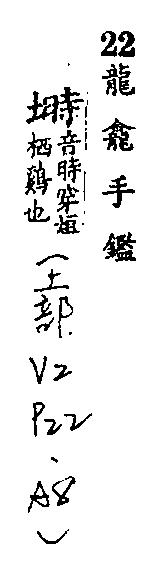 22龍龕手鑑
塒音時穿垣
栖鷄也
(土部
V2
P22
、
A8
)